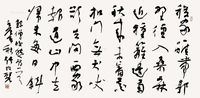 移家雖帶郭
野徑入桑麻
近種籬邊菊
秋來未著花
扣門無犬吠
欲去問西家
報道山中去
歸來每日斜